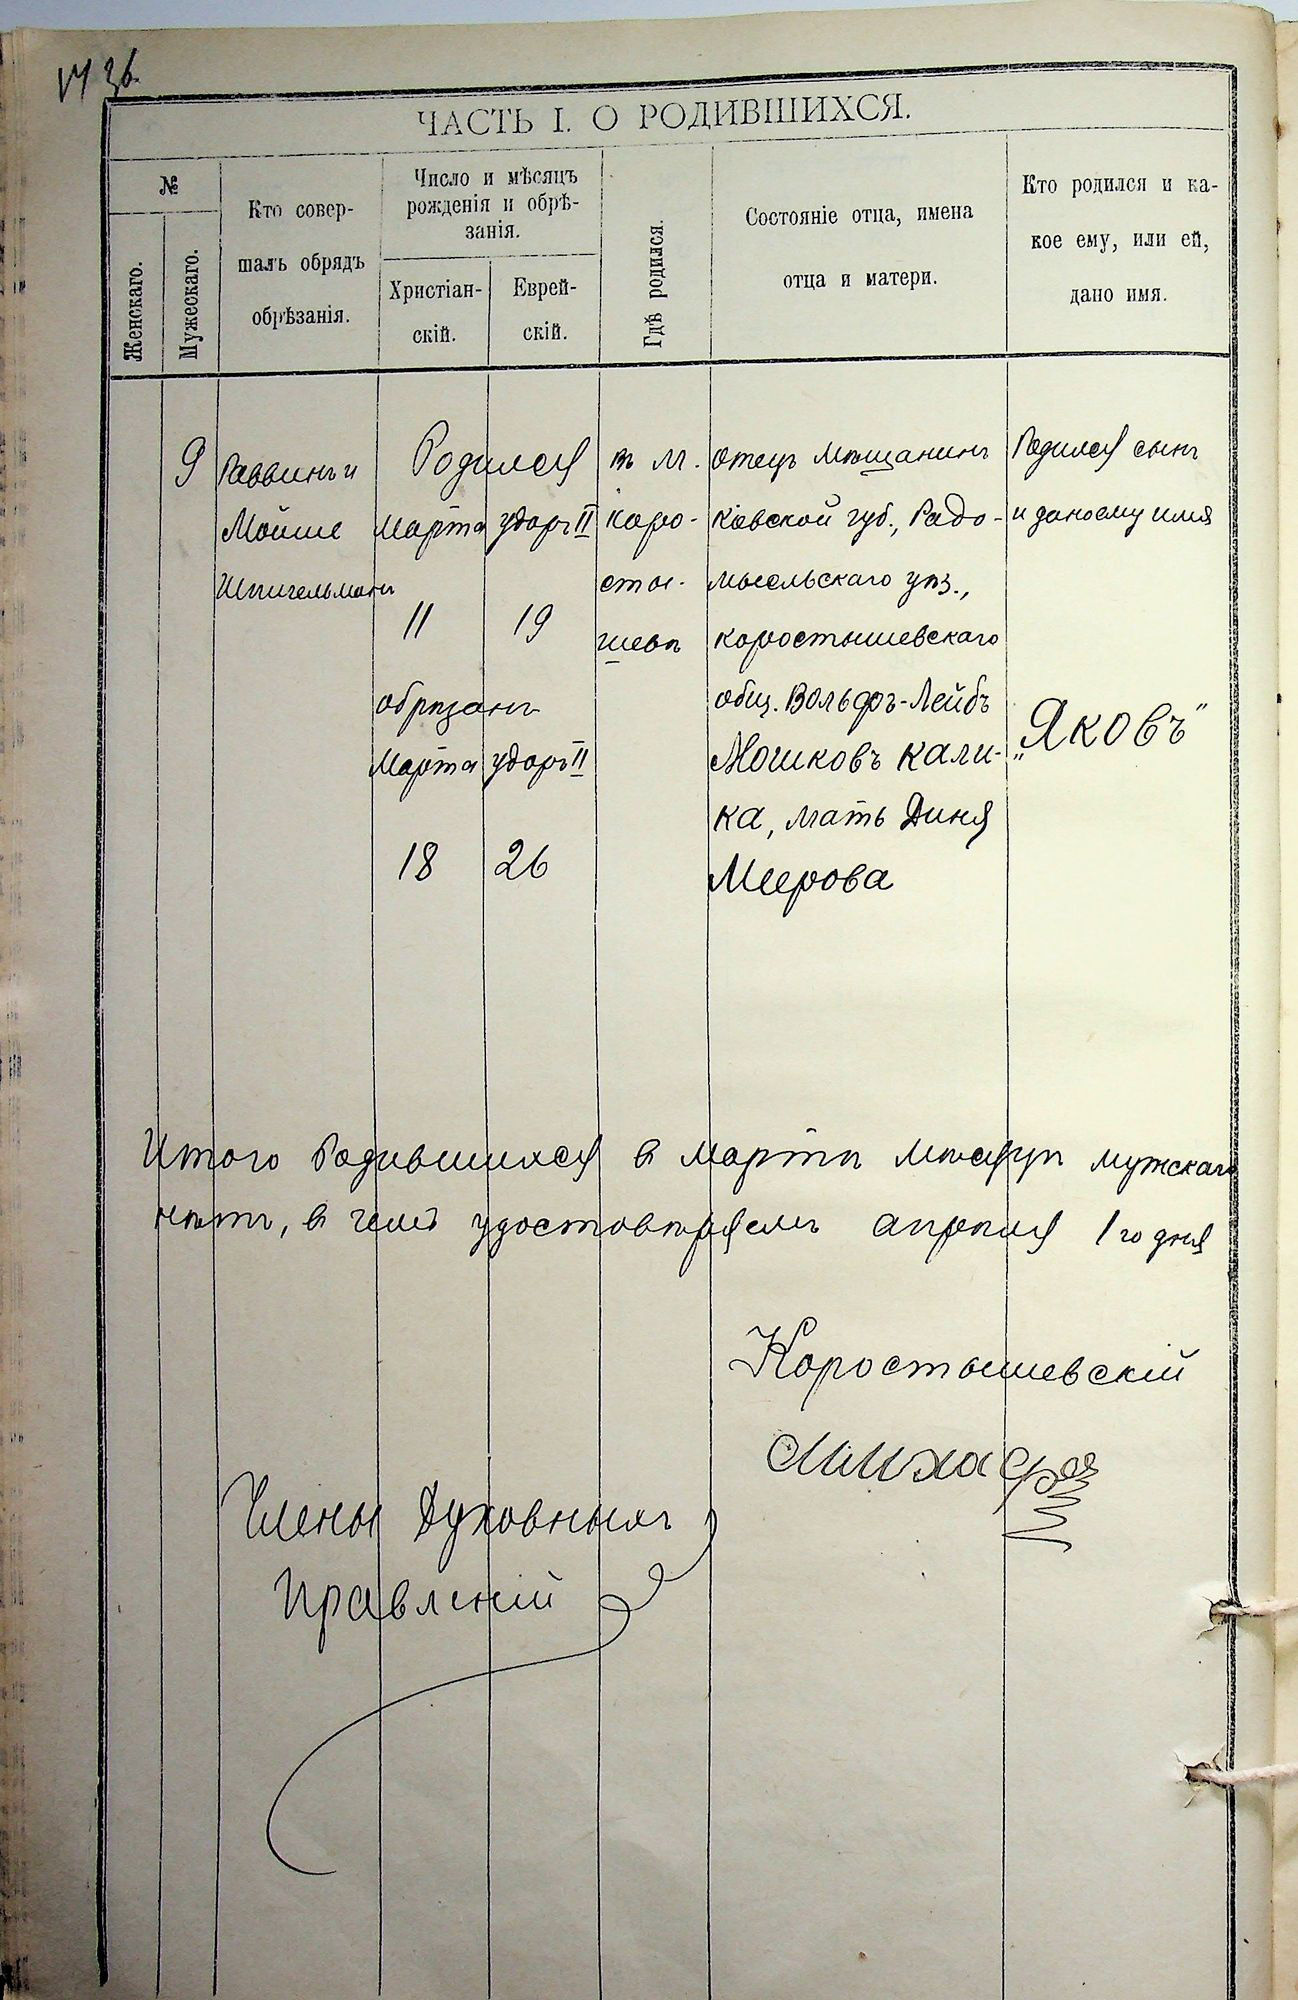 36.
ЧАСТЬ I. О РОДИВШИХСЯ.
№
Женскаго.
Мужескаго.
Кто совер-
шалъ обрядъ
обрѣзанія.
Число и мѣсяцъ
рожденія и обрѣ-
занія.
Христіан-
скій.
Еврей-
скій.
Гдѣ родился.
Состояніе отца, имена
отца и матери.
Кто родился и ка-
кое ему, или ей,
дано имя.
9
Раввинъ и
Мойше
Шпигельманъ
Родился
Марта удоръ II
11 19
обрѣзанъ
Марта удоръ II
18 26
въ м.
Коро-
сты-
шевѣ
отецъ мѣщанинъ
Кіевской губ., Радо-
мысльскаго уѣз.,
коростышевскаго
общ. Вольфъ-Лейбъ
Мошковъ Кали-
ка, мать Диня
Меерова
Родился сынъ
и дано ему имя
„Яковъ"
Итого Родившихся в мартѣ мѣсяцѣ мужскаго
нѣтъ, в чемъ удостовѣряемъ апрѣля 1го дня
Коростышевскій
Члены Духовныхъ
Правленій